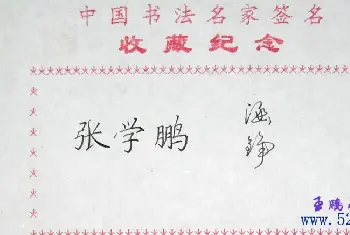 中国书法名家签名
收藏纪念
张学鹏
www.52